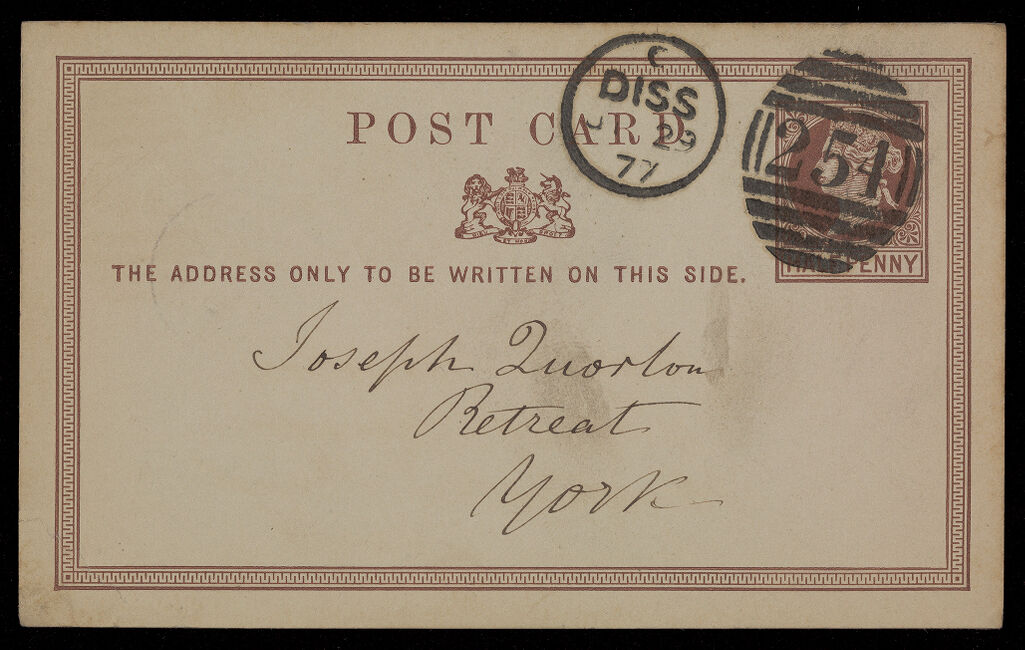 POST CARD
C
DISS
29
77
254
THE ADDRESS ONLY TO BE WRITTEN ON THIS SIDE.
HALFPENNY
Joseph Quorton
Retreat
York